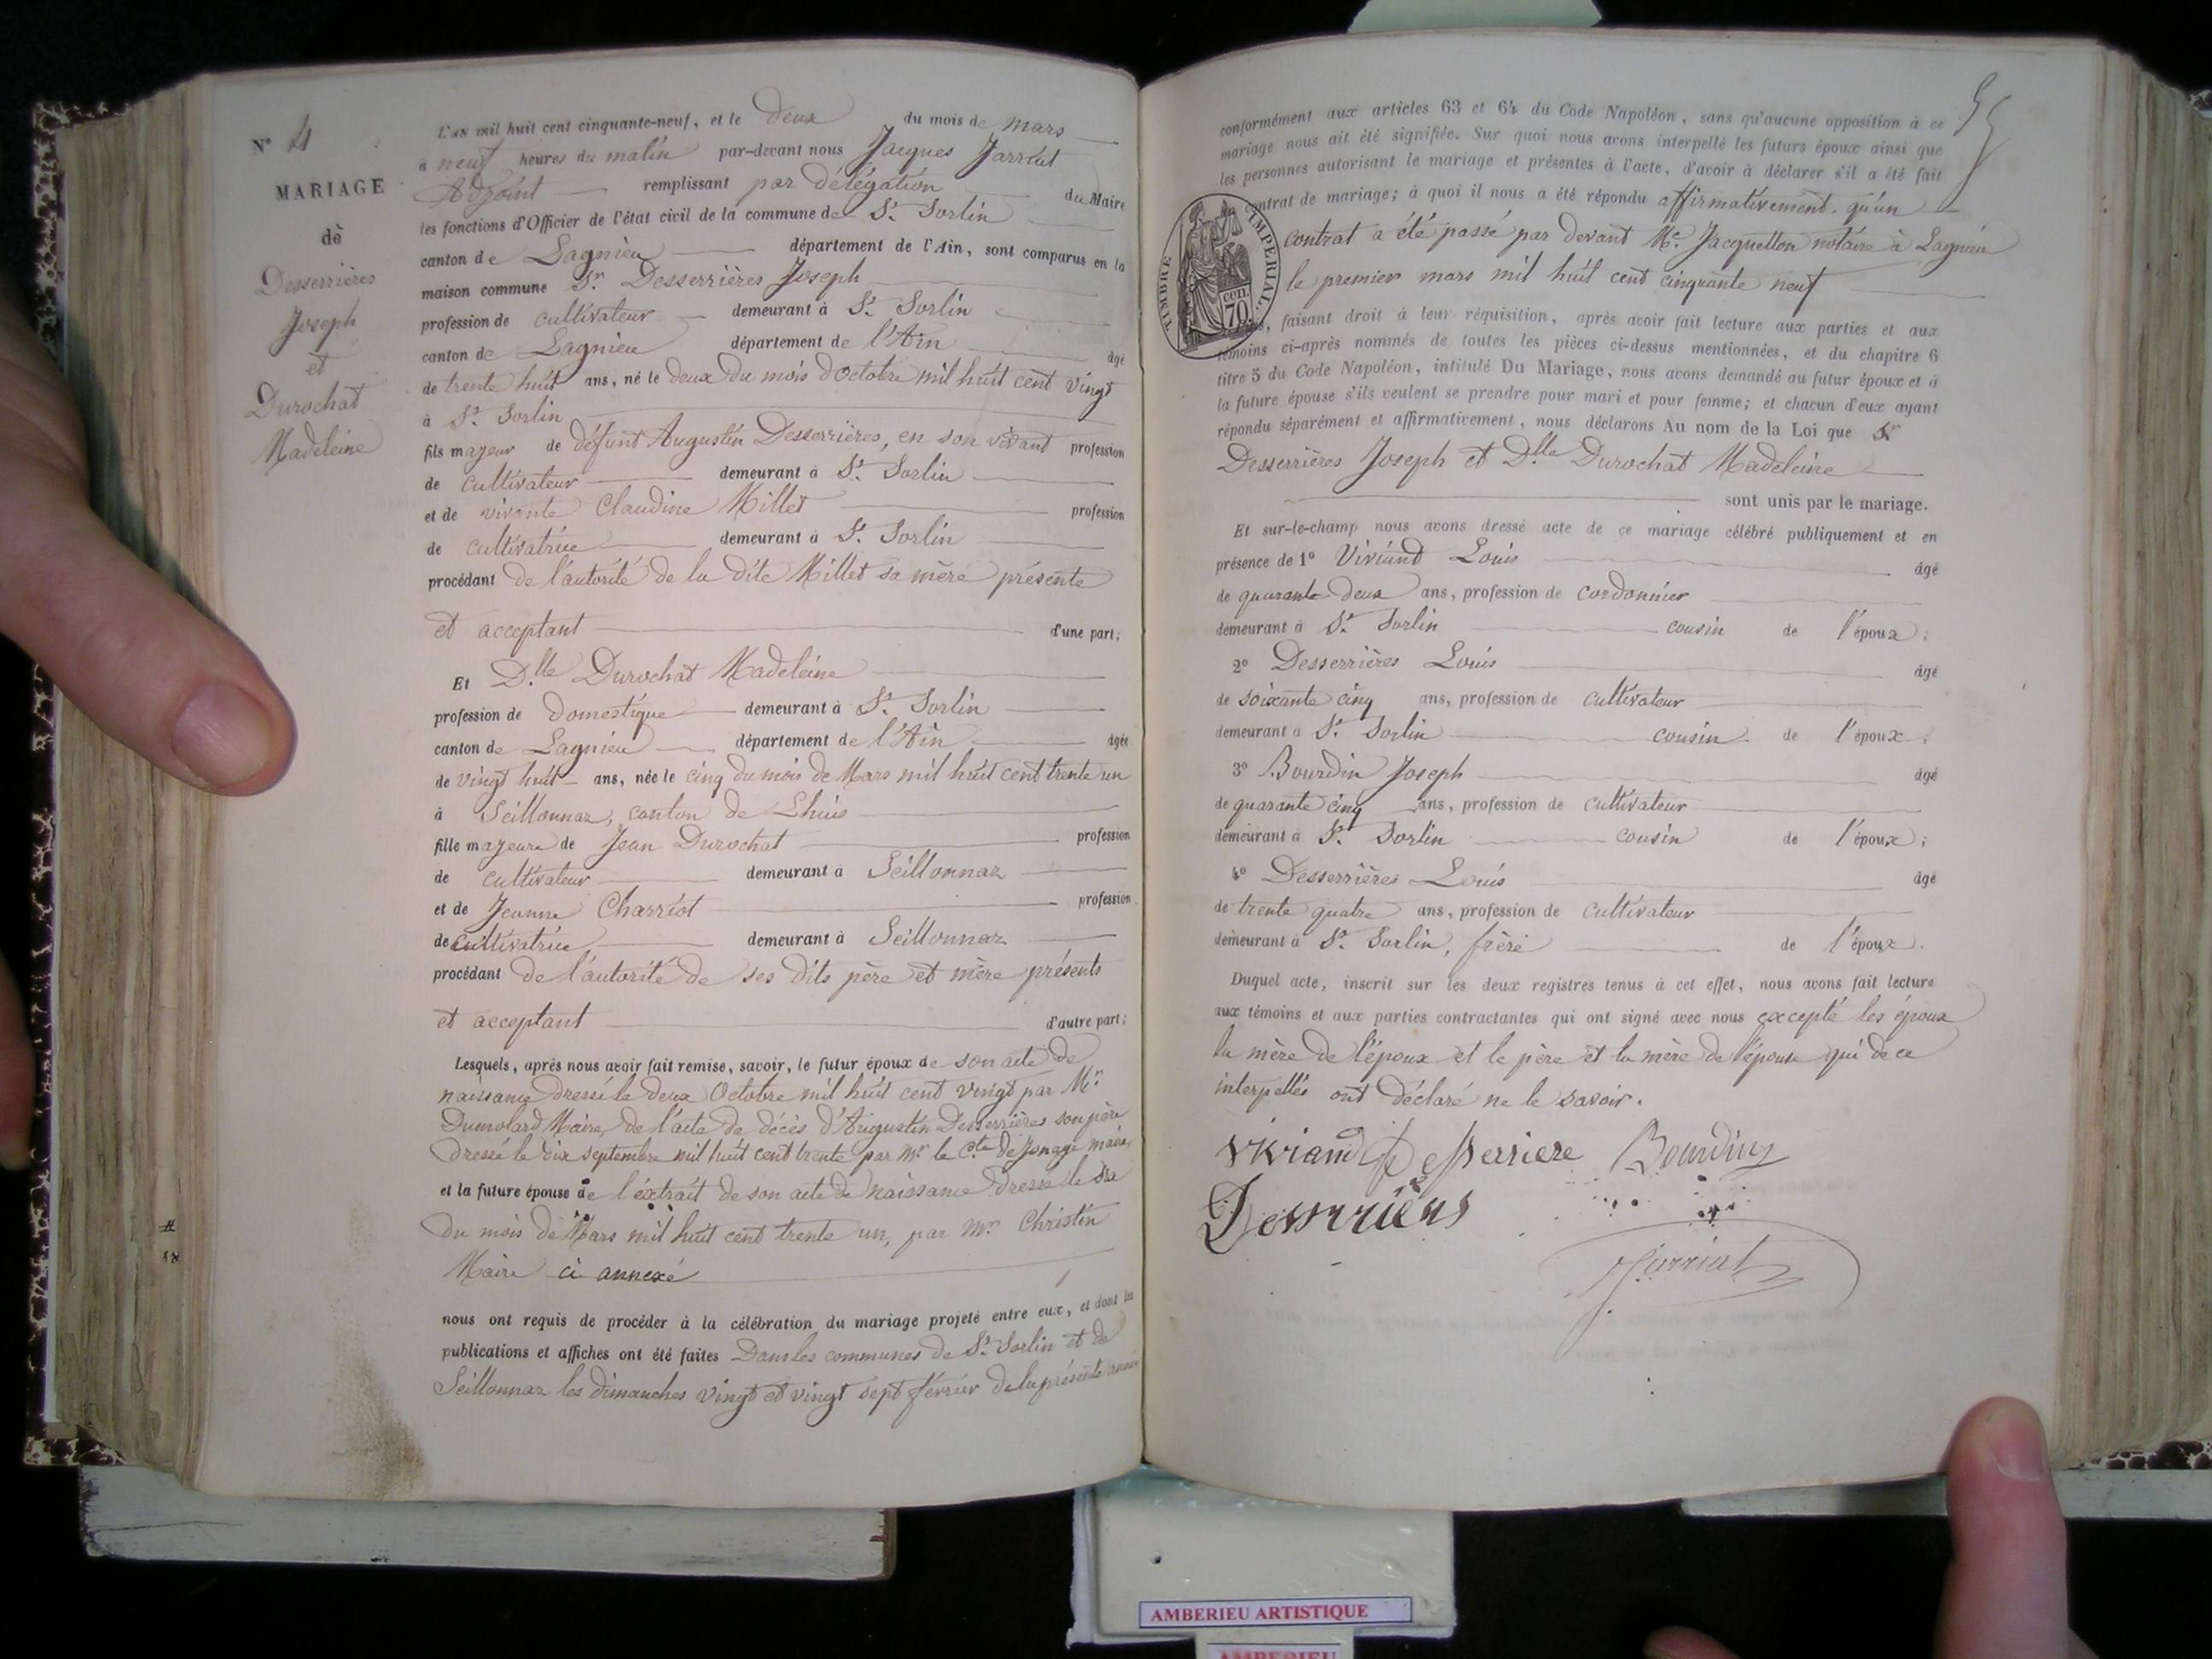 N° 4
MARIAGE
de
Desserrières
Joseph
et
Durochat
Madeleine
L'AN mil huit cent cinquante-neuf, et le deux du mois de mars
à neuf heures du matin par-devant nous Jacques Jarriat
Adjoint remplissant par délégation du Maire
les fonctions d'Officier de l'état civil de la commune de St. Sorlin
canton de Lagnieu département de l'Ain, sont comparus en la
maison commune Sr. Desserrières Joseph
profession de cultivateur demeurant à St. Sorlin
canton de Lagnieu département de l'Ain âgé
de trente huit ans, né le deux du mois d'Octobre mil huit cent vingt
à St. Sorlin
fils majeur de défunt Augustin Desserrières, en son vivant profession
de cultivateur demeurant à St. Sorlin
et de vivante Claudine Millet profession
de cultivatrice demeurant à St. Sorlin
procédant de l'autorité de la dite Millet sa mère présente
et acceptant d'une part;
Et Dlle Durochat Madeleine
profession de domestique demeurant à St. Sorlin
canton de Lagnieu département de l'Ain âgée
de vingt huit ans, née le cinq du mois de Mars mil huit cent trente un
à Seillonnaz, canton de Lhuis
fille majeure de Jean Durochat profession
de cultivateur demeurant à Seillonnaz
et de Jeanne Charriot profession
de cultivatrice demeurant à Seillonnaz
procédant de l'autorité de ses dits père et mère présents
et acceptant d'autre part;
Lesquels, après nous avoir fait remise, savoir, le futur époux de son acte de
naissance dressé le deux Octobre mil huit cent vingt par Mr.
Dumolard Maire, de l'acte de décès d'Augustin Desserrières son père
dressé le dix septembre mil huit cent trente par Mr le Cte de Jonage maire,
et la future épouse de l'extrait de son acte de naissance dressé le six
du mois de Mars mil huit cent trente un, par Mr. Christin
Maire ci annexé
nous ont requis de procéder à la célébration du mariage projeté entre eux, et dont les
publications et affiches ont été faites Dans les communes de St. Sorlin et de
Seillonnaz les dimanches vingt et vingt sept février de la présente année
conformément aux articles 63 et 64 du Code Napoléon, sans qu'aucune opposition à ce
mariage nous ait été signifiée. Sur quoi nous avons interpellé les futurs époux ainsi que
les personnes autorisant le mariage et présentes à l'acte, d'avoir à déclarer s'il a été fait
contrat de mariage; à quoi il nous a été répondu affirmativement. qu'un
contrat a été passé par devant Me. Jacquellon notaire à Lagnieu
le premier mars mil huit cent cinquante neuf
TIMBRE IMPERIAL
70 cen.
faisant droit à leur réquisition, après avoir fait lecture aux parties et aux
témoins ci-après nommés de toutes les pièces ci-dessus mentionnées, et du chapitre 6
titre 5 du Code Napoléon, intitulé Du Mariage, nous avons demandé au futur époux et à
la future épouse s'ils veulent se prendre pour mari et pour femme; et chacun d'eux ayant
répondu séparément et affirmativement, nous déclarons Au nom de la Loi que Sr
Desserrières Joseph et Dlle Durochat Madeleine
sont unis par le mariage.
Et sur-le-champ nous avons dressé acte de ce mariage célébré publiquement et en
présence de 1° Viviand Louis âgé
de quarante deux ans, profession de cordonnier
demeurant à St. Sorlin cousin de l'époux;
2° Desserrières Louis âgé
de soixante cinq ans, profession de cultivateur
demeurant à St. Sorlin cousin de l'époux;
3° Bourdin Joseph âgé
de quarante cinq ans, profession de cultivateur
demeurant à St. Sorlin cousin de l'époux;
4° Desserrières Louis âgé
de trente quatre ans, profession de cultivateur
demeurant à St. Sorlin, frère de l'époux.
Duquel acte, inscrit sur les deux registres tenus à cet effet, nous avons fait lecture
aux témoins et aux parties contractantes qui ont signé avec nous excepté les époux
la mère de l'époux et le père et la mère de l'épouse qui de ce
interpellés ont déclaré ne le savoir.
Viviand Bourdin
Jarriat
AMBERIEU ARTISTIQUE
AMBERIEU